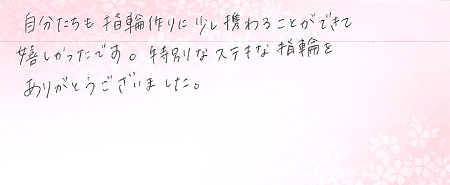 自分たちも指輪作りに少し携わることができて
嬉しかったです。特別なステキな指輪を
ありがとうございました。